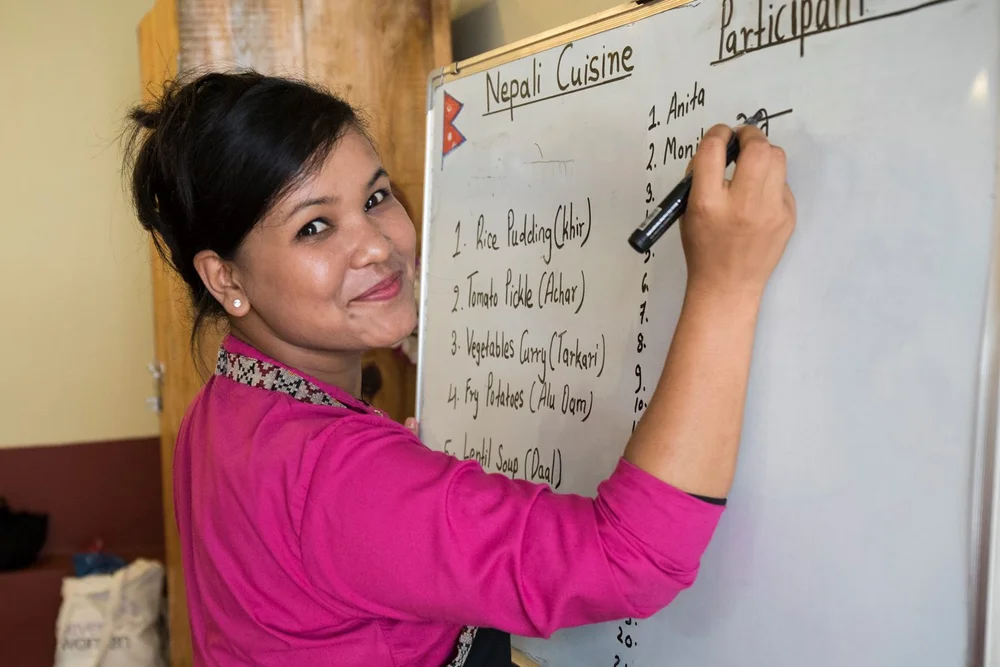 Nepali Cuisine
1. Rice Pudding (khir)
2. Tomato Pickle (Achar)
3. Vegetables Curry (Tarkari)
4. Fry Potatoes (Alu Dam)
5. Lentil Soup (Daal)
Participant
1. Anita
2.
3.
5.
6.
7.
8.
9.
10.
20.